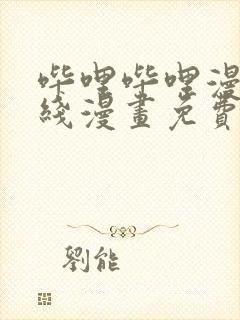 哔哩哔哩漫
綫漫畫免費
劉能